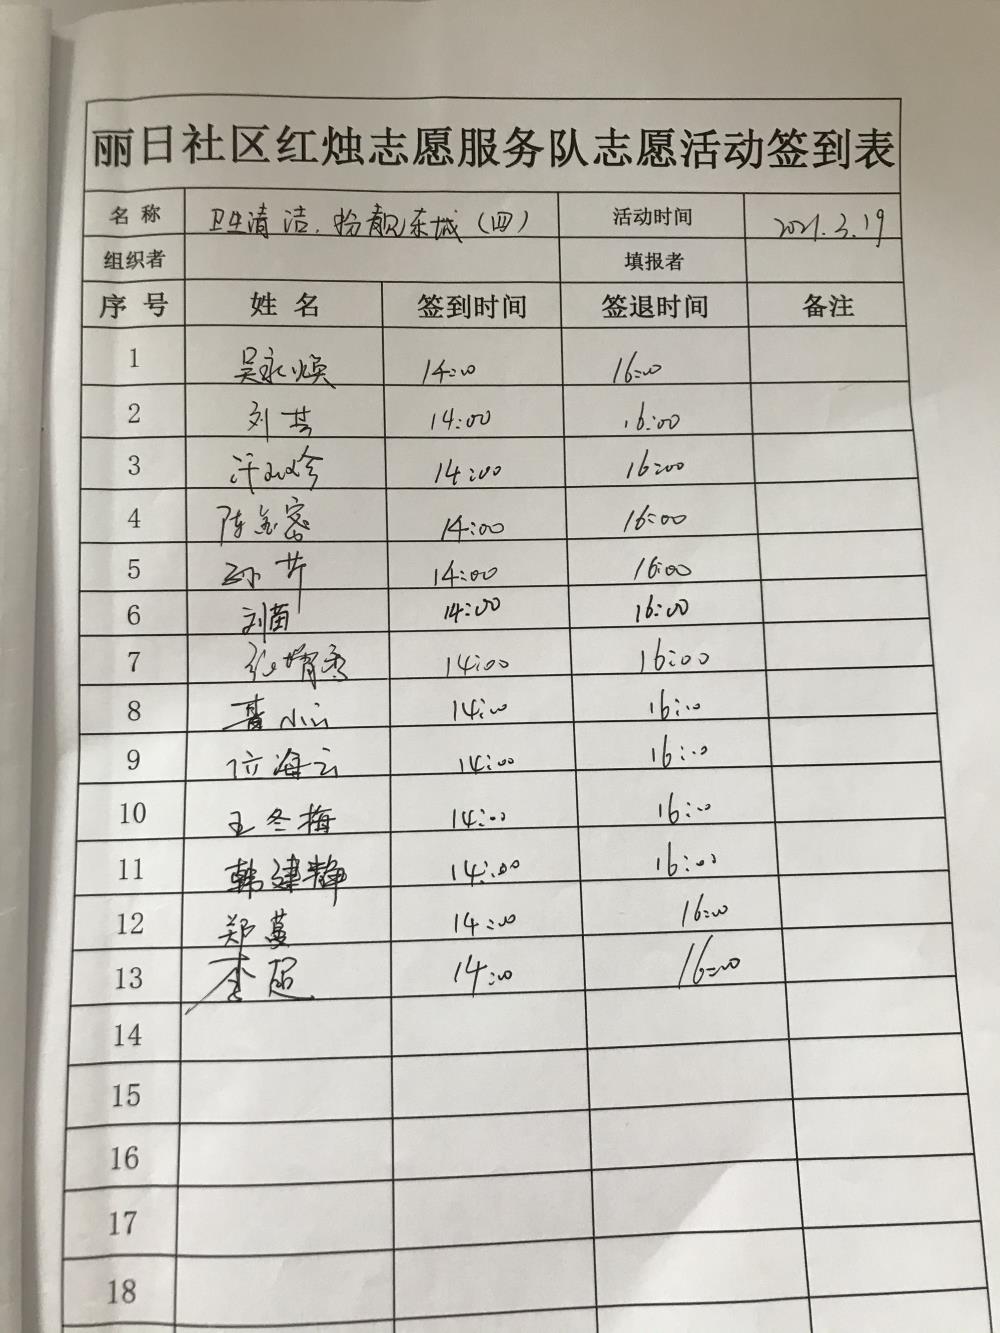 丽日社区红烛志愿服务队志愿活动签到表
名称 卫生清洁.扮靓东城(四) 活动时间 2021.3.19
组织者 填报者
序号 姓名 签到时间 签退时间 备注
1 吴永焕 14:00 16:00
2 刘芸 14:00 16:00
3 14:00 16:00
4 陈 14:00 16:00
5 孙 14:00 16:00
6 刘苗 14:00 16:00
7 14:00 16:00
8 14:00 16:00
9 位海云 14:00 16:00
10 王冬梅 14:00 16:00
11 韩建静 14:00 16:00
12 郑蔓 14:00 16:00
13 李超 14:00 16:00
14
15
16
17
18